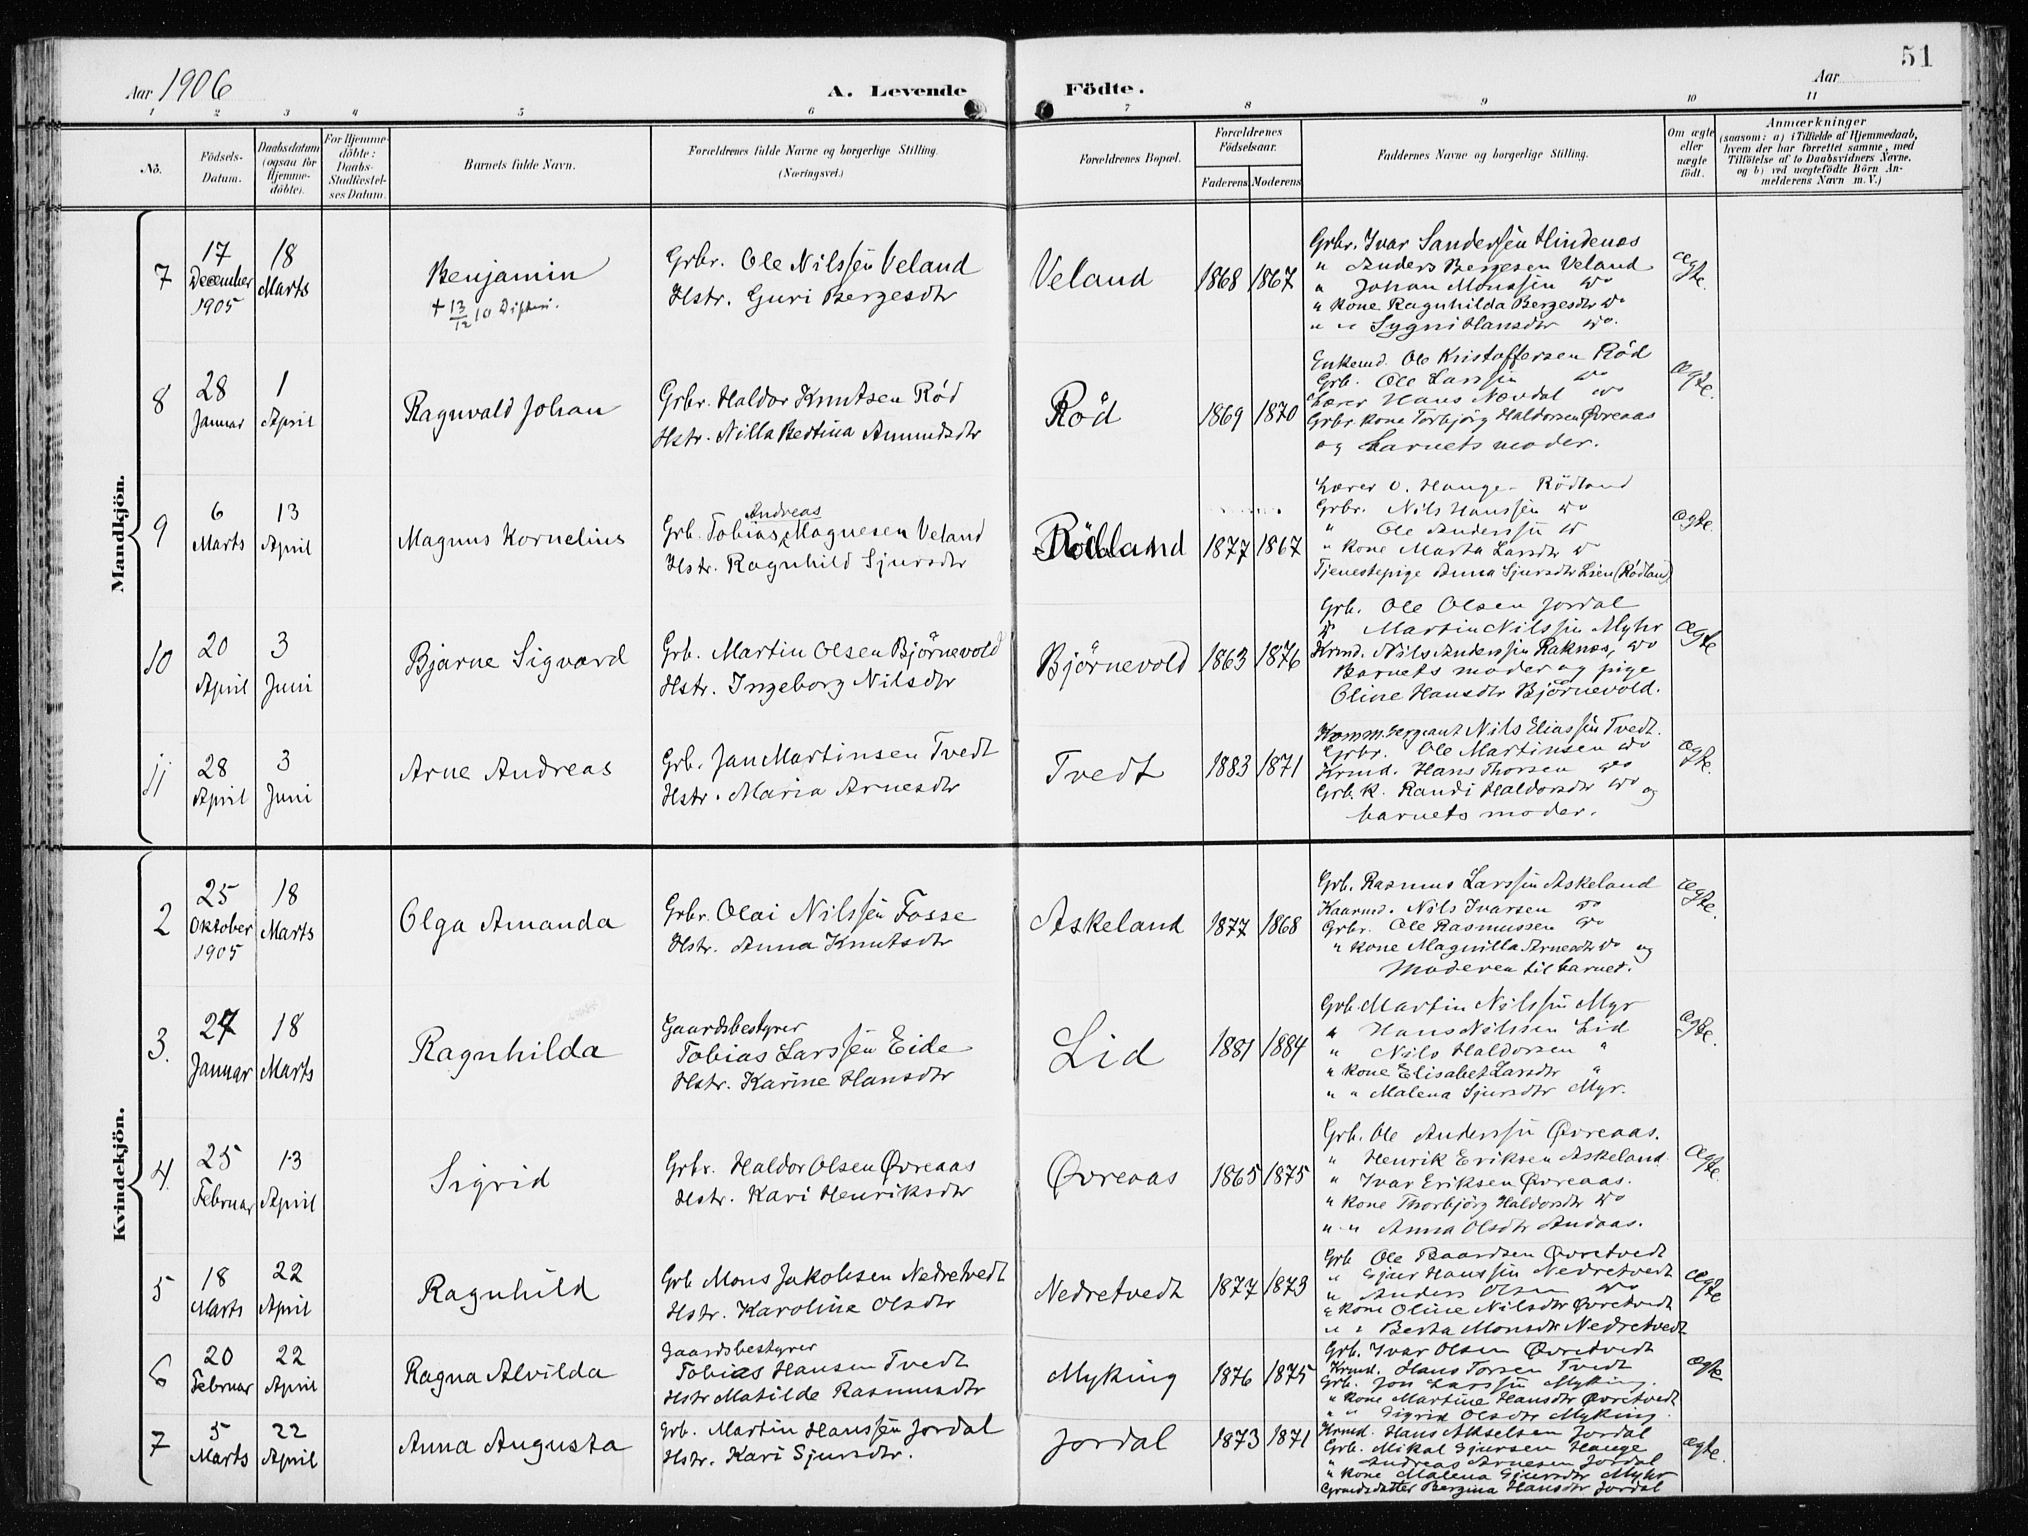 51
Aar 1906
A. Levende
Födte.
Aar
1 2 3 4 5 6 7 8 9 10 11
No.
Födsels-
Datum.
Daabsdatum
(ogsaa for
Hjemme-
döbte).
For Hjemme-
döbte:
Daabs-
Stadfæstel-
ses Datum.
Barnets fulde Navn.
Forældrenes fulde Navne og borgerlige Stilling.
(Næringsvei.)
Forældrenes Bopæl.
Forældrenes
Födselsaar.
Faderens. Moderens.
Faddernes Navne og borgerlige Stilling.
Om ægte
eller
uægte
födt.
Anmærkninger
(saasom: a) i Tilfælde af Hjemmedaab,
hvem der har forrettet samme, med
Tilföielse af to Daabsvidners Navne,
og b) ved uægtefödte Börn An-
melderens Navn m. V.)
Mandkjön.
7
17
December
1905
18
Marts
Benjamin
+ 13/12 10 Difteri.
Grbr. Ole Nilssen Veland
Hstr. Guri Bergesdtr
Veland
1868 1867
Grbr. Ivar Sanderssen Hindenæs
" Anders Bergesen Veland
" Johan Monssen do
" kone Ragnhilda Bergesdtr do
" " Sygni Hansdtr do.
ægte.
8
28
Januar
1
April
Ragnvald Johan
Grbr. Haldor Knutsen Rød
Hstr. Nilla Bertina Amundsdtr
Rød
1869 1870
Enkemd. Ole Kristoffersen Rød
Grb. Ole Larssen do
Lærer Hans Nævdal do
Grbr. kone Torbjörg Haldorsen Øvreaas
og barnets moder.
ægte.
9
6
Marts
13
April
Magnus Kornelius
Andreas
Grb. Tobias Magnesen Veland
Hstr. Ragnhild Sjursdtr
Rödland
1877 1867
Lærer O. Hauge Rödland
Grbr. Nils Hanssen do
" Ole Anderssen do
" kone Marta Larsdtr do
Tjenestepige Anna Sjursdtr Lien (Rödland)
ægte.
10
20
April
3
Juni
Bjarne Sigvard
Grb. Martin Olsen Björnevold
Hstr. Ingeborg Nilsdtr
Björnevold
1863 1876
Grb. Ole Olsen Jordal
" Martin Nilssen Myhr
Krmd. Nils Anderssen Raknæs, do
Barnets moder og pige
Oline Hansdtr Björnevold.
ægte
11
28
April
3
Juni
Arne Andreas
Grb. Jan Martinsen Tvedt
Hstr. Maria Arnesdtr
Tvedt
1883 1871
Komm. sergeant Nils Eliassen Tvedt.
Grbr. Ole Martinsen do
Krmd. Hans Thorsen do
Grb. k. Randi Haldorsdtr do og
barnets moder.
ægte.
Kvindekjön.
2
25
Oktober
1905
18
Marts
Olga Amanda
Grbr. Olai Nilssen Fosse
Hstr. Anna Knutsdtr
Askeland
1877 1868
Grb. Rasmus Larssen Askeland
Kaarmd. Nils Ivarsen do
Grbr. Ole Rasmussen do
" kone Magnilla Arnesdtr do og
Moderen til barnet.
ægte.
3.
27
Januar
18
Marts
Ragnhilda
Gaardsbestyrer
Tobias Larssen Eide
Hstr. Karine Hansdtr
Lid
1881 1884
Grb. Martin Nilssen Myr
" Hans Nilssen Lid
" Nils Haldorsen "
" kone Elisabet Larsdtr "
" " Malena Sjursdtr Myr.
ægte.
4.
25
Februar
13
April
Sigrid
Grbr. Haldor Olsen Øvreaas
Hstr. Kari Henriksdtr
Øvreaas
1865 1875
Grb. Ole Anderssen Øvreaas.
" Henrik Eriksen Askeland.
" Ivar Eriksen Øvreaas.
" kone Thorbjörg Haldorsdtr do
" " Anna Olsdtr Andaas.
ægte.
5
18
Marts
22
April
Ragnhild
Grb Mons Jakobsen Nedretvedt
Hstr. Karoline Olsdtr
Nedretvedt
1877 1873
Grb Ole Baardsen Øvretvedt
" Sjur Hanssen Nedretvedt
" Anders Olsen do
" kone Oline Nilsdtr Øvretvedt
" " Berta Monsdtr Nedretvedt
ægte
6
20
Februar
22
April
Ragna Alvilda
Gaardsbestyrer
Tobias Hansen Tvedt
Hstr Matilde Rasmusdtr
Myking
1876 1875
Grb. Ivar Olsen Øvretvedt
Krmd. Hans Torsen Tvedt
Grb. Jon Larssen Myking.
" kone Martine Hansdtr Øvretvedt
" " Sigrid Olsdtr Myking.
ægte
7
5
Marts
22
April
Anna Augusta
Grb. Martin Hanssen Jordal
Hstr. Kari Sjursdtr.
Jordal
1873 1871
Krmd. Hans Akselsen Jordal
Grb. Mikal Sjursen Hauge
" Andreas Arnesen Jordal
" kone Malena Sjursdtr Myhr
Grmdsdatter Bergina Hansdtr Jordal
ægte.